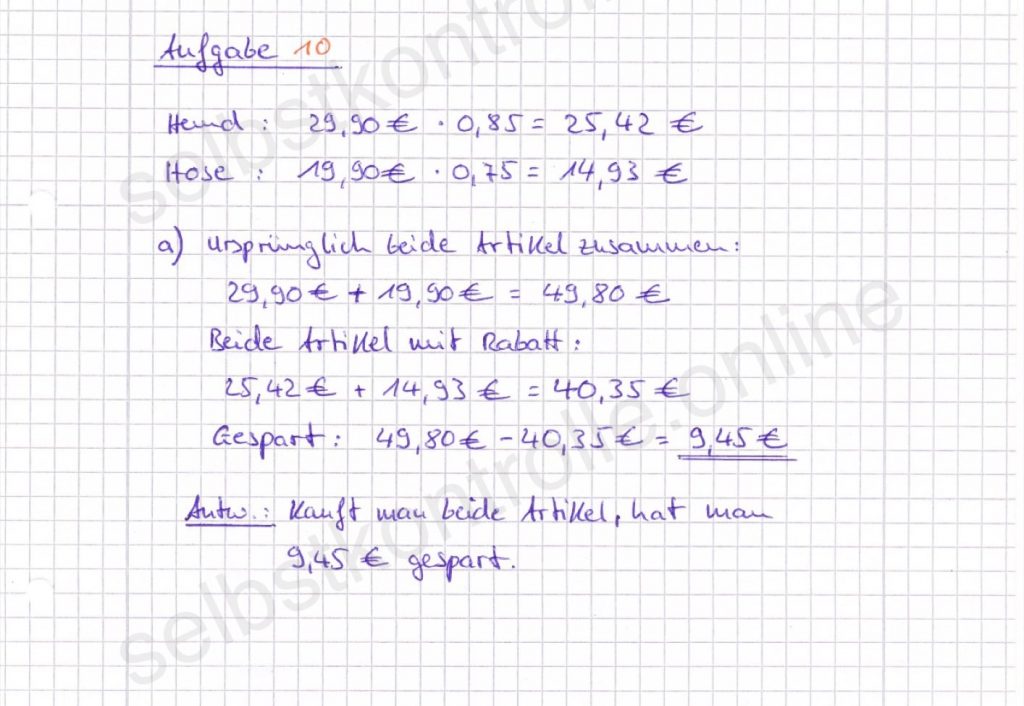 Aufgabe 10
Hemd : 29,90 € · 0,85 = 25,42 €
Hose : 19,90 € · 0,75 = 14,93 €
a) Ursprünglich beide Artikel zusammen:
29,90 € + 19,90 € = 49,80 €
Beide Artikel mit Rabatt:
25,42 € + 14,93 € = 40,35 €
Gespart: 49,80 € - 40,35 € = 9,45 €
Antw.: Kauft man beide Artikel, hat man
9,45 € gespart.
selbstkontrolle.online
selbstkontrolle.online